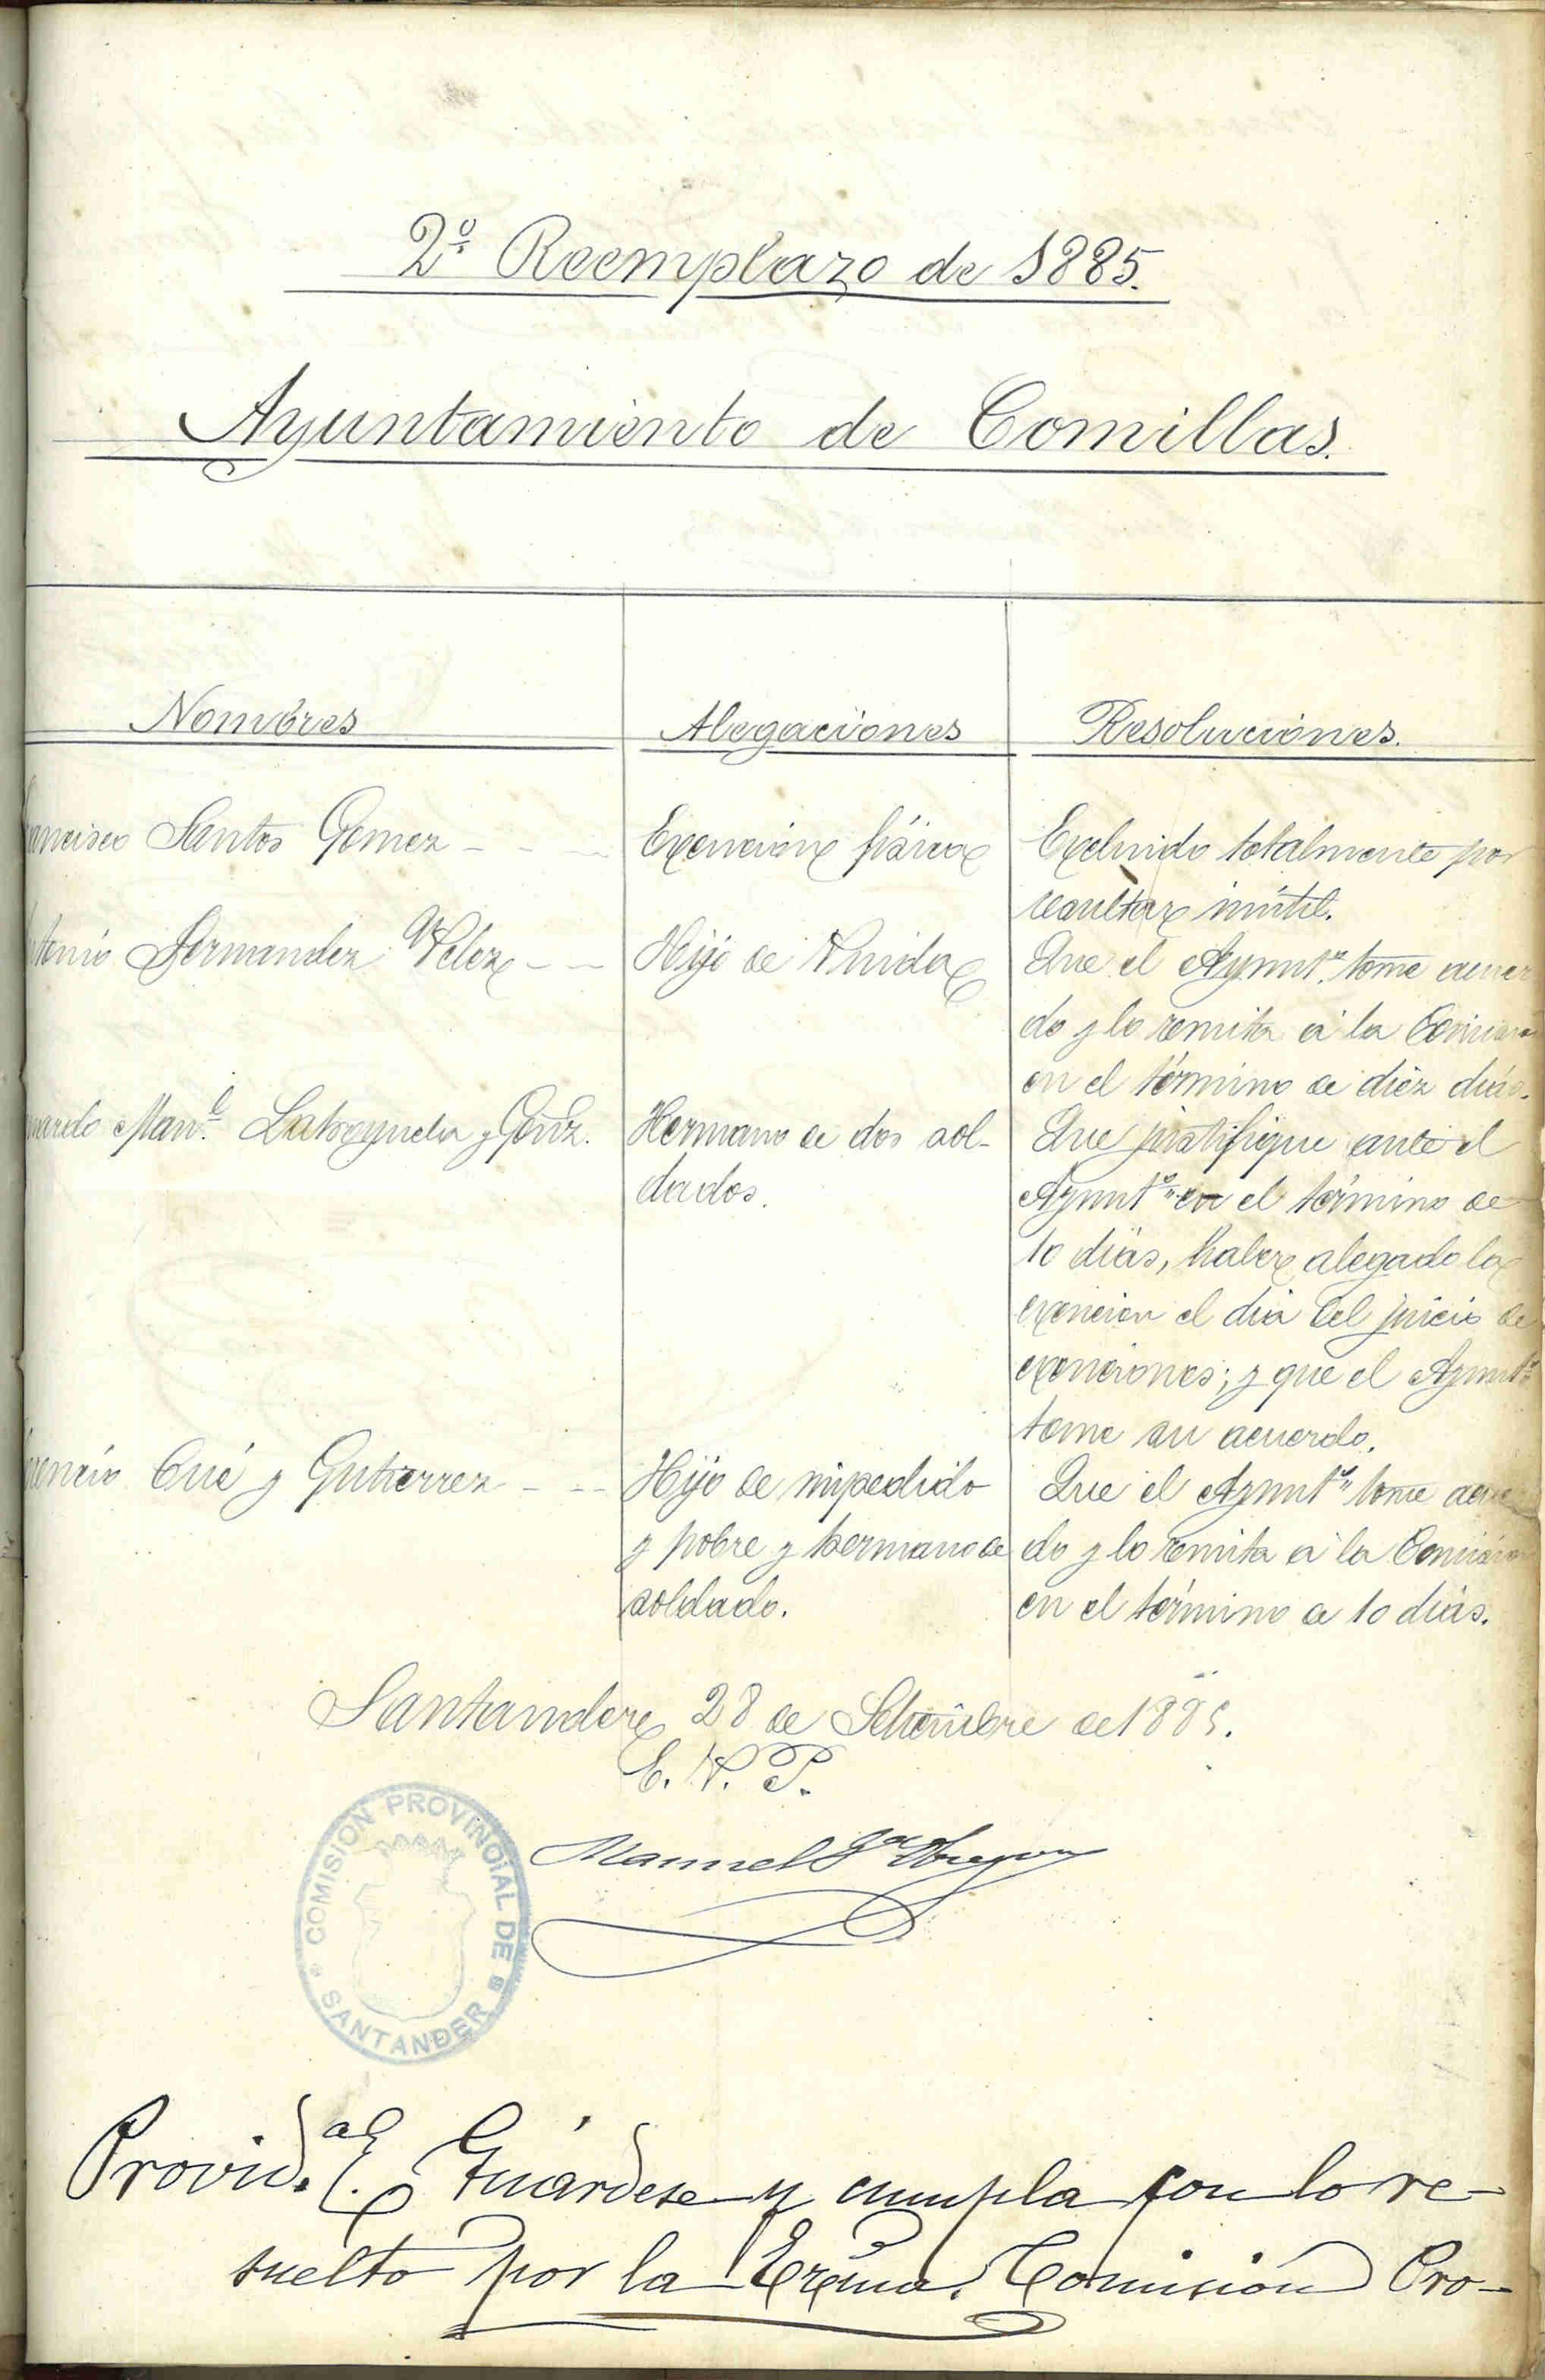 2º Reemplazo de 1885.
Ayuntamiento de Comillas.
Nombres
Alegaciones
Resoluciones.
ancisco Santos Gomez - - -
Exencion física
Excluido totalmente por
resultar inútil.
tonio Fernandez Velez - -
Hijo de Viuda
Que el Ayuntº tome acuer
do y lo remita á la Comision
en el término de diez dias.
nardo Manl. Laboyuela y Gonz.
Hermano de dos sol-
dados.
Que justifique ante el
Ayuntº en el término de
10 dias, haber alegado la
exencion el dia del juicio de
exenciones; y que el Ayuntº
tome su acuerdo.
encio Cué y Gutierrez - - -
Hijo de impedido
y pobre y hermano de
soldado.
Que el Ayuntº tome acuer
do y lo remita á la Comision
en el término de 10 dias.
Santander 28 de Setiembre de 1885.
E. V. P.
COMISION PROVINCIAL DE SANTANDER
Manuel Gª Obregon
Provid.al Guárdese y cumpla con lo re-
suelto por la Excma. Comisión Pro-